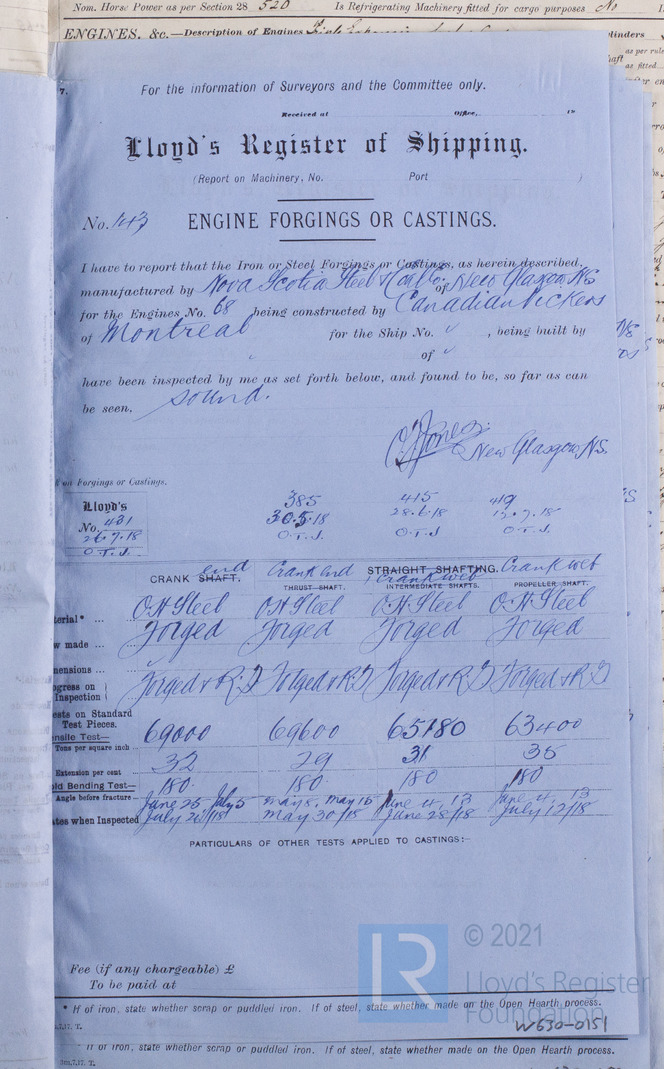 Nom. Horse Power as per Section 28 520 Is Refrigerating Machinery fitted for cargo purposes No
ENGINES, &c.—Description of Engines Triple Expansion
as per rule
as fitted
7.
For the information of Surveyors and the Committee only.
Received at Office, 19
Lloyd's Register of Shipping.
(Report on Machinery, No. Port )
No. 143 ENGINE FORGINGS OR CASTINGS.
I have to report that the Iron or Steel Forgings or Castings, as herein described,
manufactured by Nova Scotia Steel & Coal Co of New Glasgow NS
for the Engines No. 68 being constructed by Canadian Vickers
of Montreal for the Ship No. " , being built by
" of "
have been inspected by me as set forth below, and found to be, so far as can
be seen, sound.
O.T. Jones New Glasgow N.S.
on Forgings or Castings.
Lloyd's 385 415 419
No. 431 30.5.18 28.6.18 12.7.18
26.7.18 O.T.J. O.T.J. O.T.J.
O.T.J.
CRANK SHAFT. end Crank end STRAIGHT SHAFTING. Crank web
THRUST SHAFT. Crank web INTERMEDIATE SHAFTS. PROPELLER SHAFT.
terial* ... O.H. Steel O.H. Steel O.H. Steel O.H. Steel
w made ... Forged Forged Forged Forged
mensions ...
ogress on Inspection Forged & R.T Forged & R.T Forged & R.T Forged & R.T
ests on Standard
Test Pieces.
ensile Test— 69000 69600 65180 63400
Tons per square inch
Extension per cent 32 29 31 35
ld Bending Test— 180. 180. 180 180
Angle before fracture— June 25 July 5 May 8, May 15 June 4, 13 June 4, 13
tes when Inspected July 26/18 May 30/18 June 28/18 July 12/18
PARTICULARS OF OTHER TESTS APPLIED TO CASTINGS:—
Fee (if any chargeable) £
To be paid at
* If of iron, state whether scrap or puddled iron. If of steel, state whether made on the Open Hearth process.
.7.17. T.
W630-0151
If of iron, state whether scrap or puddled iron. If of steel, state whether made on the Open Hearth process.
.7.17. T.
LR
© 2021
Lloyd's Register
Foundation